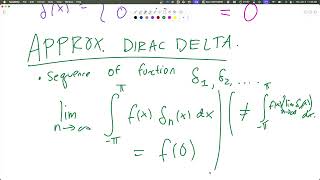 δ(x) = { 0 = 0
APPROX. DIRAC DELTA.
• Sequence of function δ₁, δ₂, ....
lim n→∞ ∫_{-π}^{π} f(x) δₙ(x) dx ( ≠ ∫_{-π}^{π} f(x) (lim n→∞ δₙ(x)) dx.
= f(0)